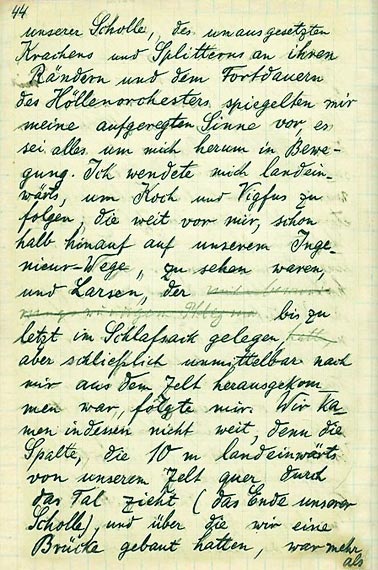 44
unserer Scholle, des unausgesetzten
Krachens und Splitterns an ihren
Rändern und dem Fortdauern
des Höllenorchesters, spiegelten mir
meine aufgeregten Sinne vor, es
sei alles um mich herum in Bewe-
gung. Ich wendete mich landein-
wärts, um Koch und Vigfus zu
folgen, die weit vor mir, schon
halb hinauf auf unserem Inge-
nieur-Wege, zu sehen waren,
und Larsen, der
bis zu
letzt im Schlafsack gelegen, hatt
aber schließlich unmittelbar nach
mir aus dem Zelt herausgekom
men war, folgte mir. Wir ka-
men indessen nicht weit, denn die
Spalte, die 10 m landeinwärts
von unserem Zelt quer durch
das Tal zieht (das Ende unserer
Scholle), und über die wir eine
Brücke gebaut hatten, war mehr
als